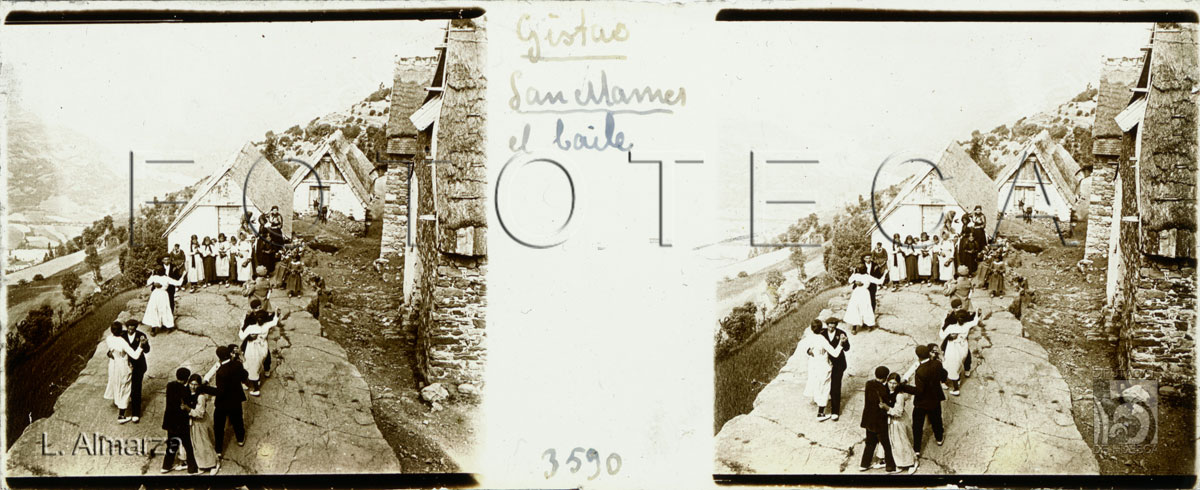 Gistao
San Mames
el baile
FOTOTECA
L. Almarza
3590